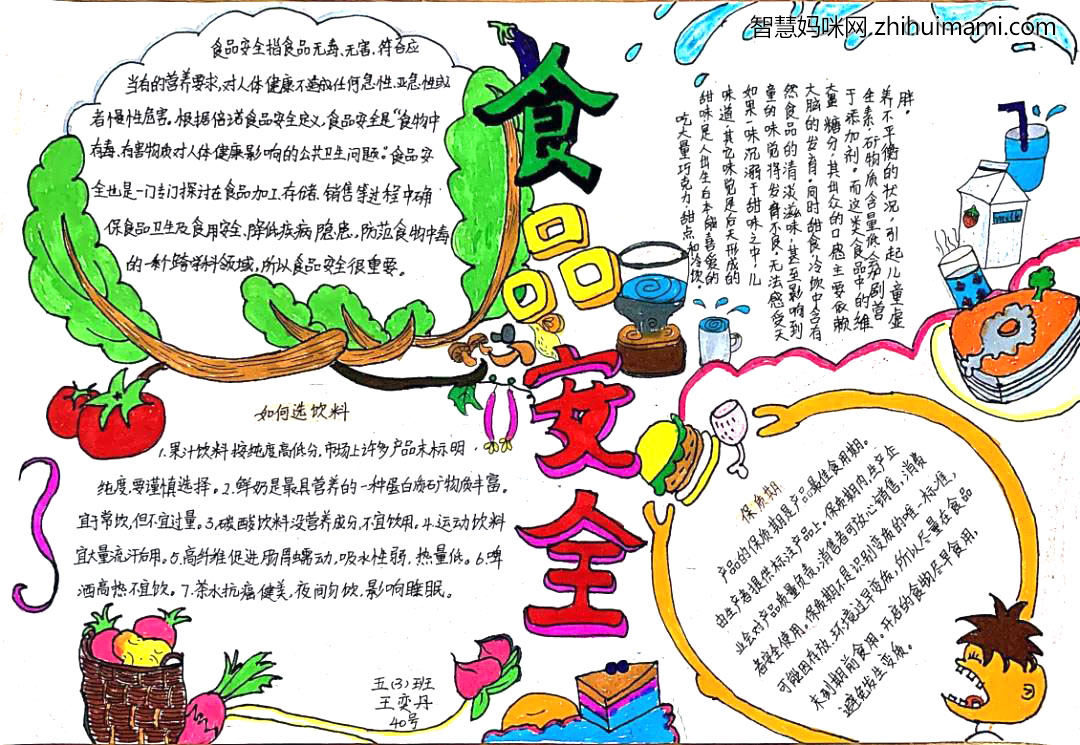 智慧妈咪网.zhihuimami.com
食品安全
食品安全指食品无毒、无害、符合应
当有的营养要求,对人体健康不造成任何急性、亚急性或
者慢性危害。根据倍诺食品安全定义,食品安全是“食物中
有毒、有害物质对人体健康影响的公共卫生问题。”食品安
全也是一门专门探讨在食品加工、存储、销售等过程中确
保食品卫生及食用安全、降低疾病隐患、防范食物中毒
的一种跨学科领域,所以食品安全很重要。
吃大量巧克力、甜点和冷饮。
甜味是人出生后本能喜爱的
味道,其它味觉是后天形成的
如果一味沉溺于甜味之中,儿
童的味觉将发育不良,无法感受天
然食品的清淡滋味,甚至影响到
大脑的发育。同时甜食、冷饮中含有
大量糖分,其出众的口感主要依赖
于添加剂。而这类食品中的维
生素、矿物质含量低,会加剧营
养不平衡的状况,引起儿童虚
胖。
如何选饮料
1.果汁饮料按纯度高低分,市场上许多产品未标明
纯度,要谨慎选择。2.鲜奶是最具营养的一种蛋白质矿物质丰富。
宜于常饮,但不宜过量。3.碳酸饮料没营养成分,不宜饮用。4.运动饮料
宜大量流汗后用。5.高纤维促进肠胃蠕动,吸水性弱,热量低。6.啤
酒高热不宜饮。7.茶水抗癌健美,夜间勿饮,影响睡眠。
保质期
产品的保质期是产品最佳食用期。
由生产者提供标注产品上。保质期内,生产企
业会对产品质量负责,消费者可放心销售,消费
者安全使用。保质期不是识别变质的唯一标准,
可能因存放、环境过早变质,所以尽量在食品
未到期前食用。开启的食物尽早食用。
避免发生变质。
milk
五(3)班
王奕丹
40号